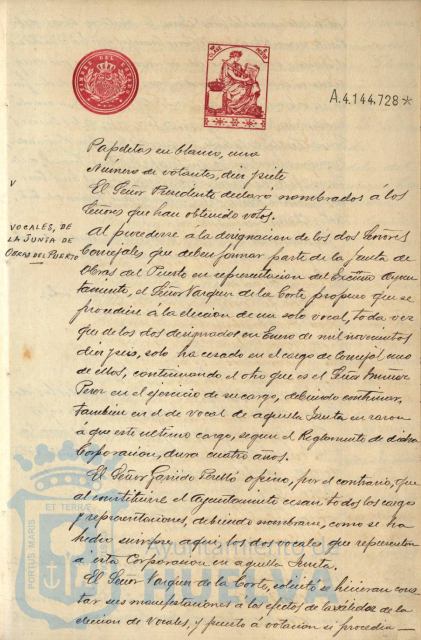 TIMBRE DEL ESTADO
A.4.144.728*
Papeletas en blanco, una
Número de votantes, diez y siete
El Señor Presidente declaró nombrados á los
Señores que han obtenido votos.
V
VOCALES, DE
LA JUNTA DE
OBRAS DEL PUERTO
Al procederse á la designacion de los dos Señores
Concejales que deben formar parte de la Junta de
Obras del Puerto en representacion del Excmo Ayun-
tamiento, el Señor Vazquez de la Corte propuso que se
procediera á la eleccion de un solo vocal, toda vez
que de los dos designados en Enero de mil novecientos
diez y seis, solo ha cesado en el cargo de Concejal uno
de ellos, continuando el otro que es el Señor Muñoz
Perez en el ejercicio de su cargo, debiendo continuar
tambien en el de vocal de aquella Junta en razon
á que este ultimo cargo, segun el Reglamento de dicha
Corporacion, dura cuatro años.
El Señor Garrido Perelló opina, por el contrario, que
al constituirse el Ayuntamiento cesan todos los cargos
y representaciones, debiendo nombrarse, como se ha
hecho siempre aqui, los dos vocales que representen
á esta Corporacion en aquella Junta.
El Señor Vazquez de la Corte, solicitó se hicieran cons-
tar sus manifestaciones á los efectos de la validez de la
eleccion de Vocales, y puesto á votacion si procedia
PORTUS MARIS
ET TERRAE
Ayuntamiento de
HUELVA